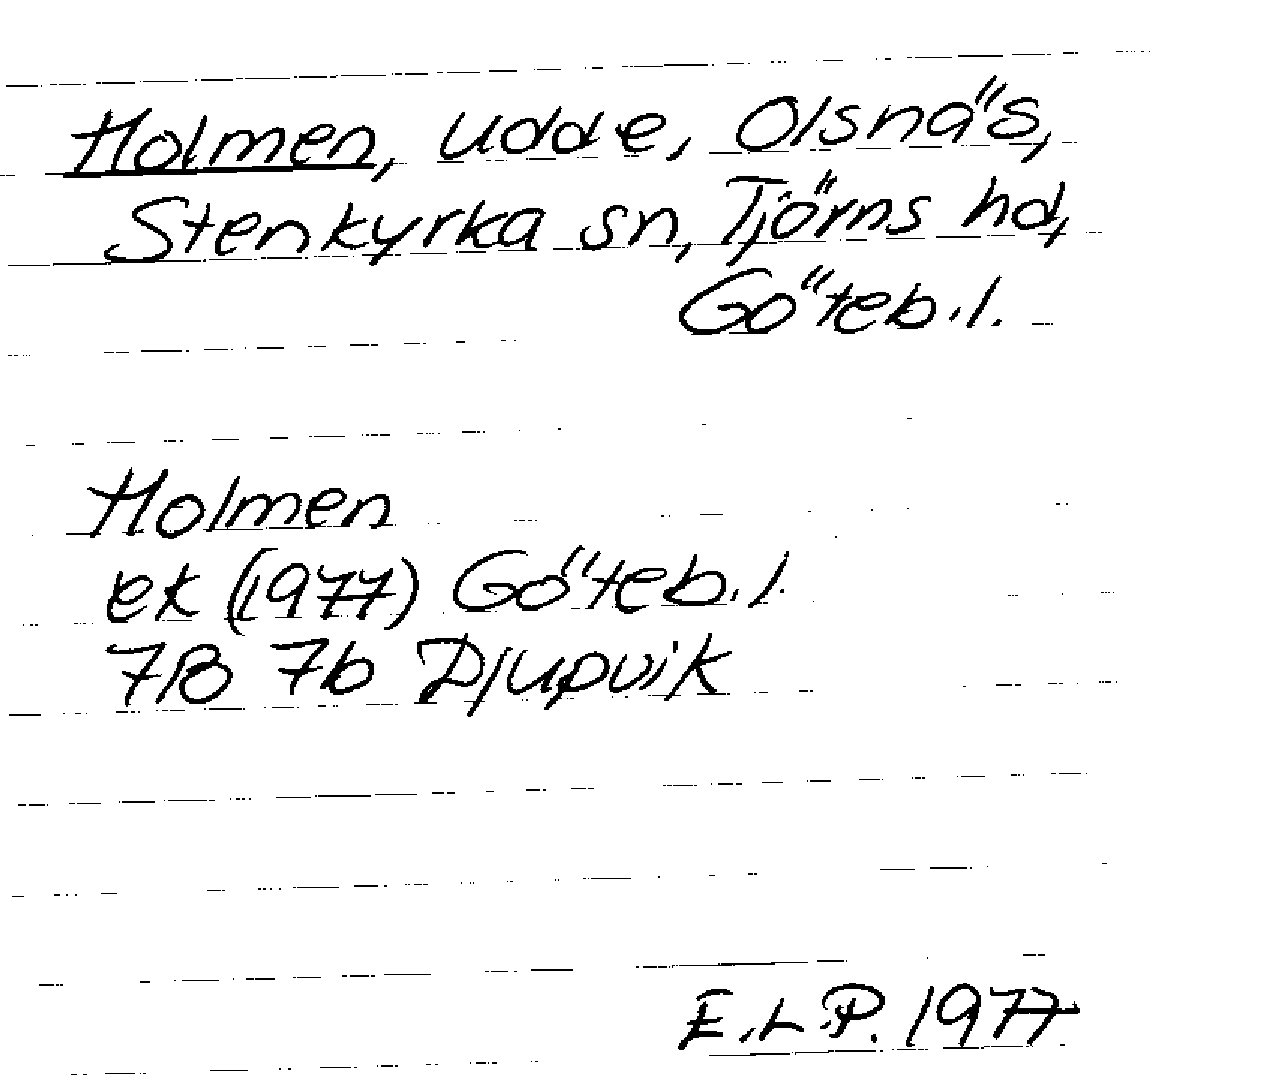 Holmen, udde, Olsnäs,
Stenkyrka sn, Tjörns hd,
Göteb.l.
Holmen
ek (1977) Göteb.l.
7B 7b Djupvik
E.L.P. 1977